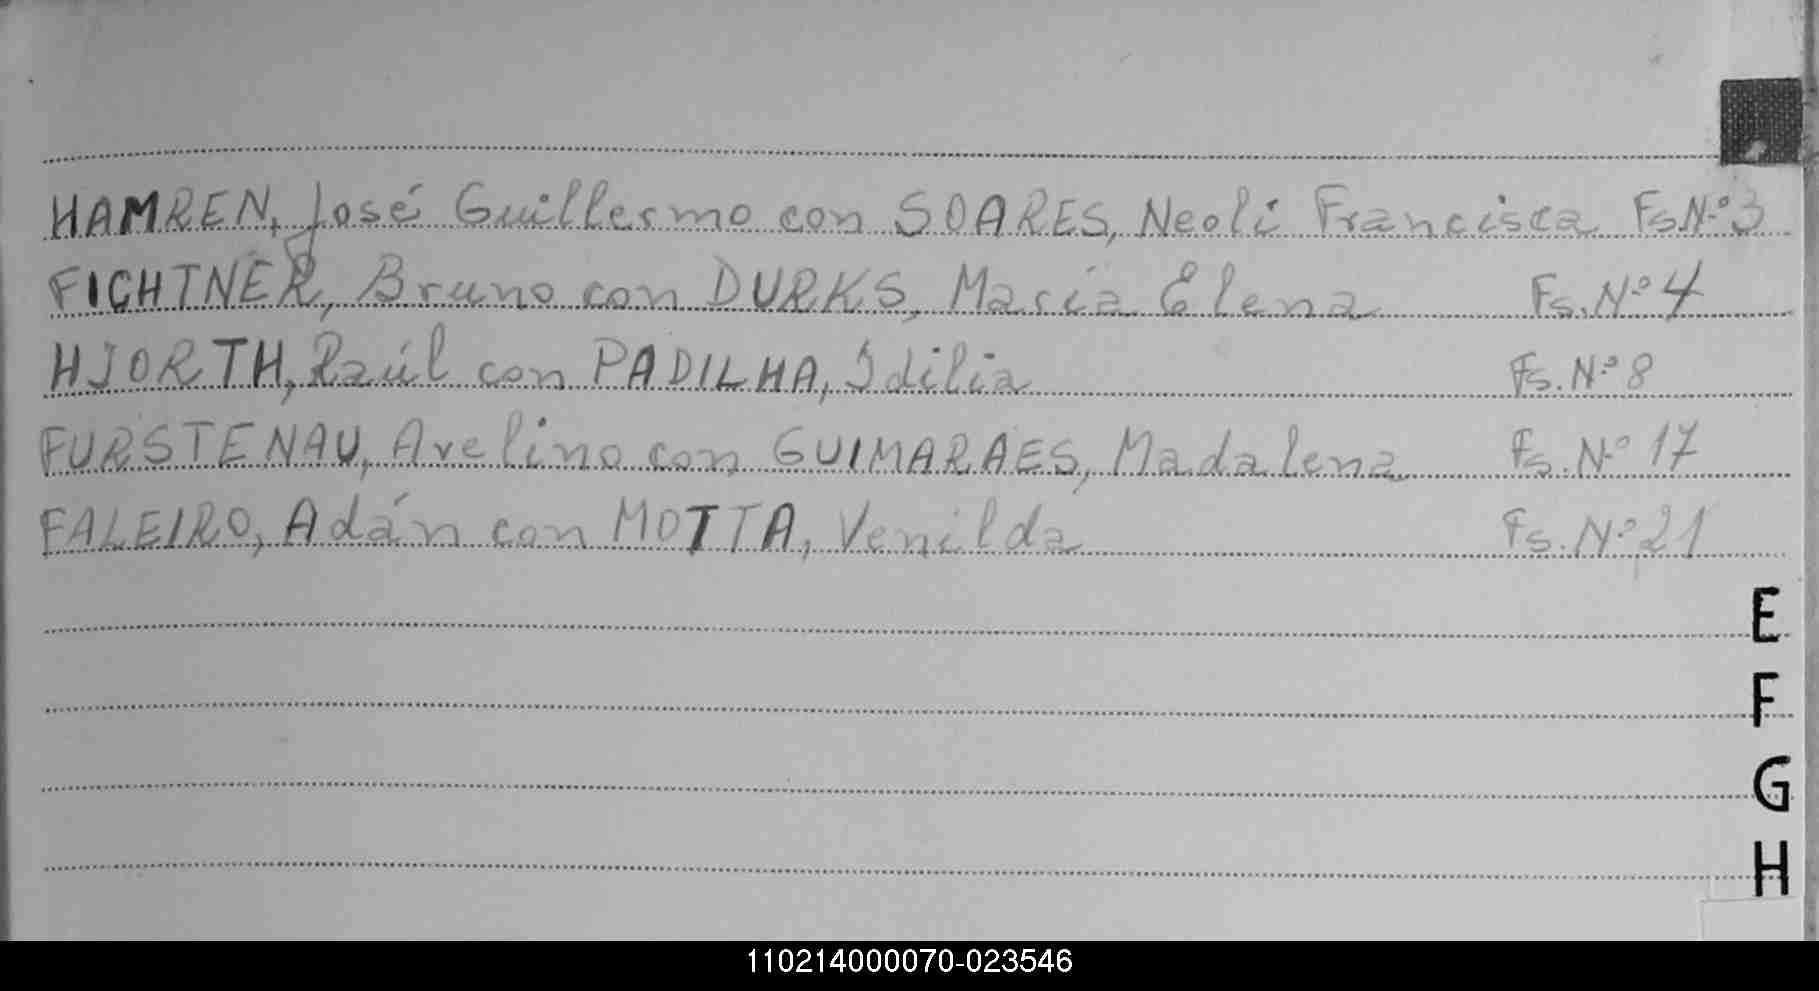 HAMREN, José Guillermo con SOARES, Neoli Francisca Fs.Nº3
FICHTNER, Bruno con DURKS, María Elena Fs.Nº4
HJORTH, Raúl con PADILHA, Idilia Fs.Nº8
FURSTENAU, Avelino con GUIMARAES, Madalena Fs.Nº17
FALEIRO, Adán con MOTTA, Venilda Fs.Nº21
E
F
G
H
110214000070-023546